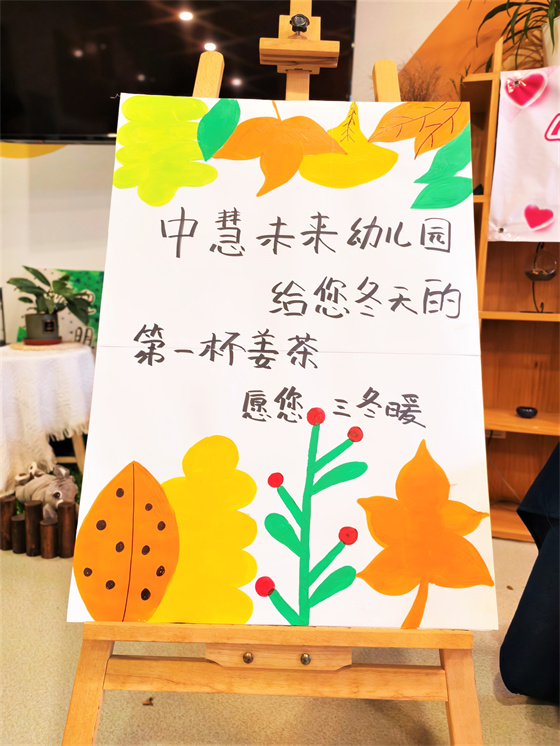 中慧未来幼儿园
给您冬天的
第一杯姜茶
愿您 三冬暖